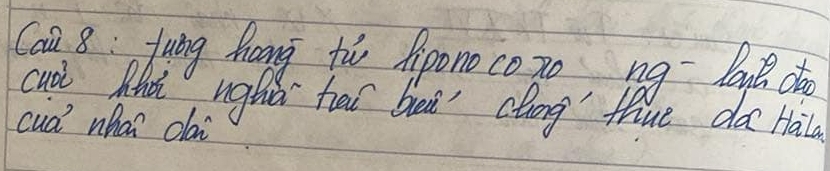 Câu 8: tượng hoàng tử Diponocoro ng - lãnh đạo
cuộc khởi nghĩa tiêu biểu chống thực dân Hà Lan
của nhân dân